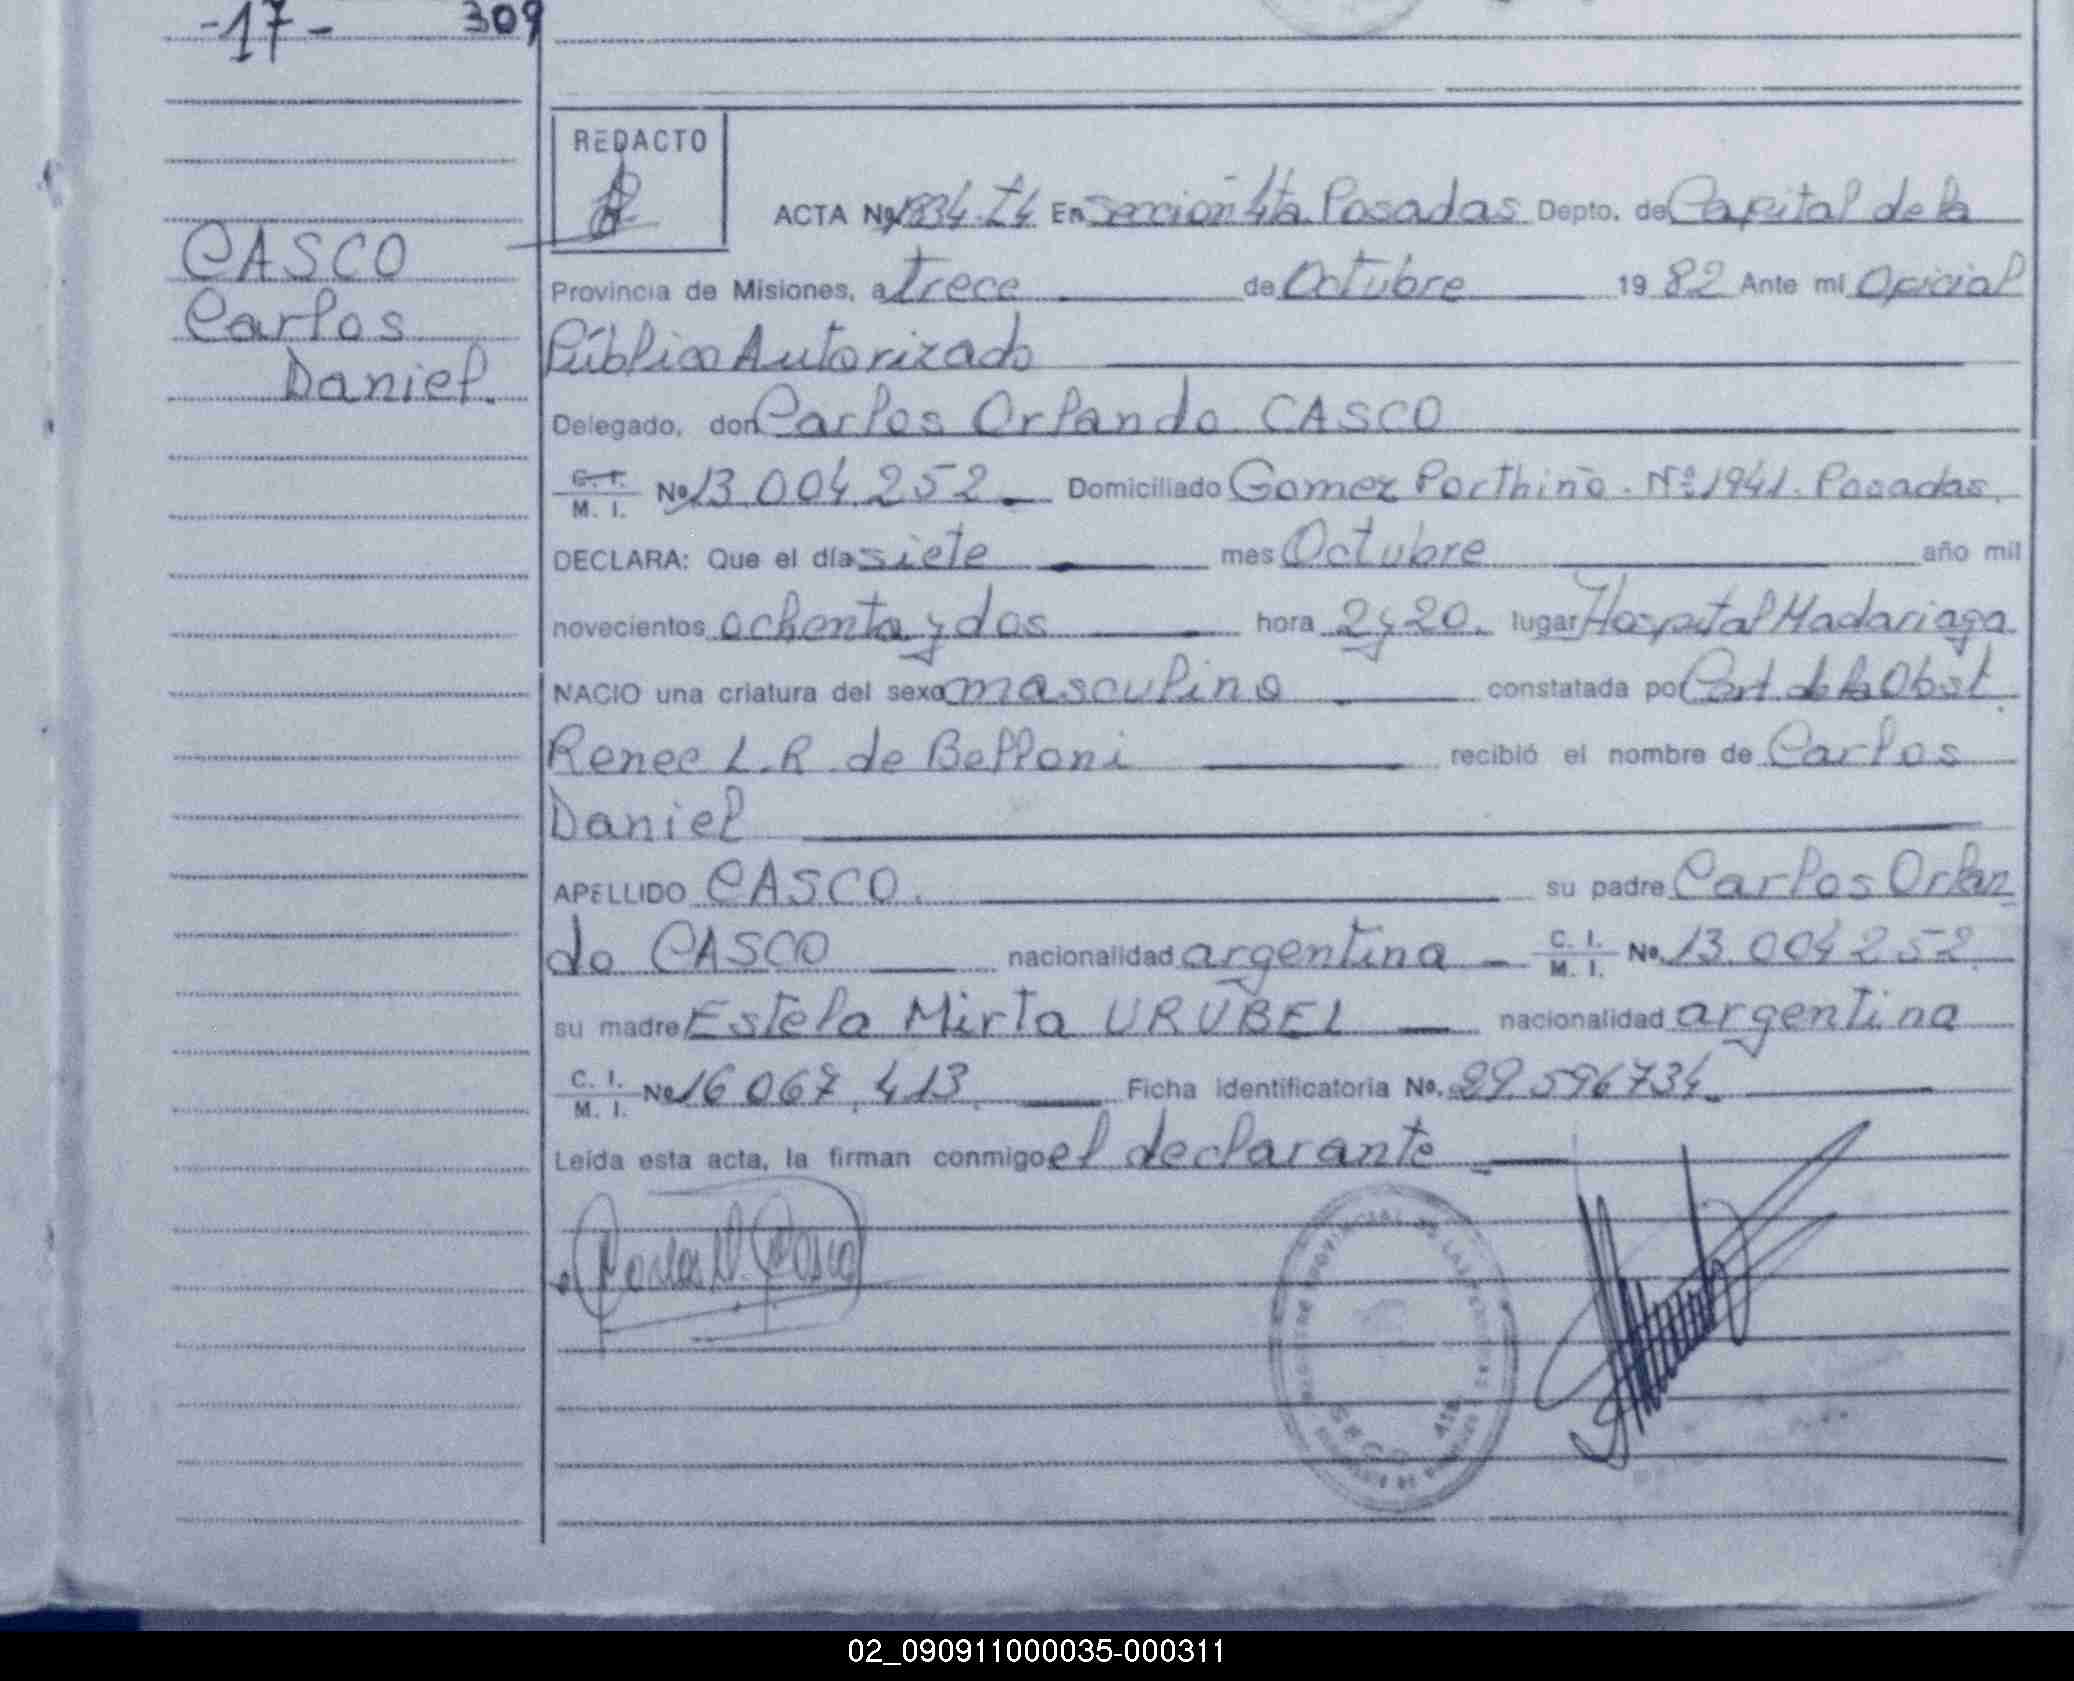 -17- 309
REDACTO
ACTA Nº 1834. T4 En Sección 4ta. Posadas Depto. de Capital de la
CASCO
Provincia de Misiones, a trece de Octubre 19 82 Ante mí Oficial
Carlos
Público Autorizado
Daniel.
Delegado, don Carlos Orlando CASCO
C. I. M. I. Nº 13.004.252. Domiciliado Gomez Porthiño. Nº 1941. Posadas.
DECLARA: Que el día siete mes Octubre año mil
novecientos ochenta y dos hora 2y20. lugar Hospital Madariaga
NACIO una criatura del sexo masculino constatada por Cert. de la Obst.
Renee L.R. de Belloni recibió el nombre de Carlos
Daniel
APELLIDO CASCO. su padre Carlos Orlan
do CASCO nacionalidad argentina C. I. M. I. Nº 13.004.252.
su madre Estela Mirta URUBEL nacionalidad argentina
C. I. M. I. Nº 16.067.413. Ficha identificatoria Nº. 29.596734.
Leída esta acta, la firman conmigo el declarante
02_090911000035-000311